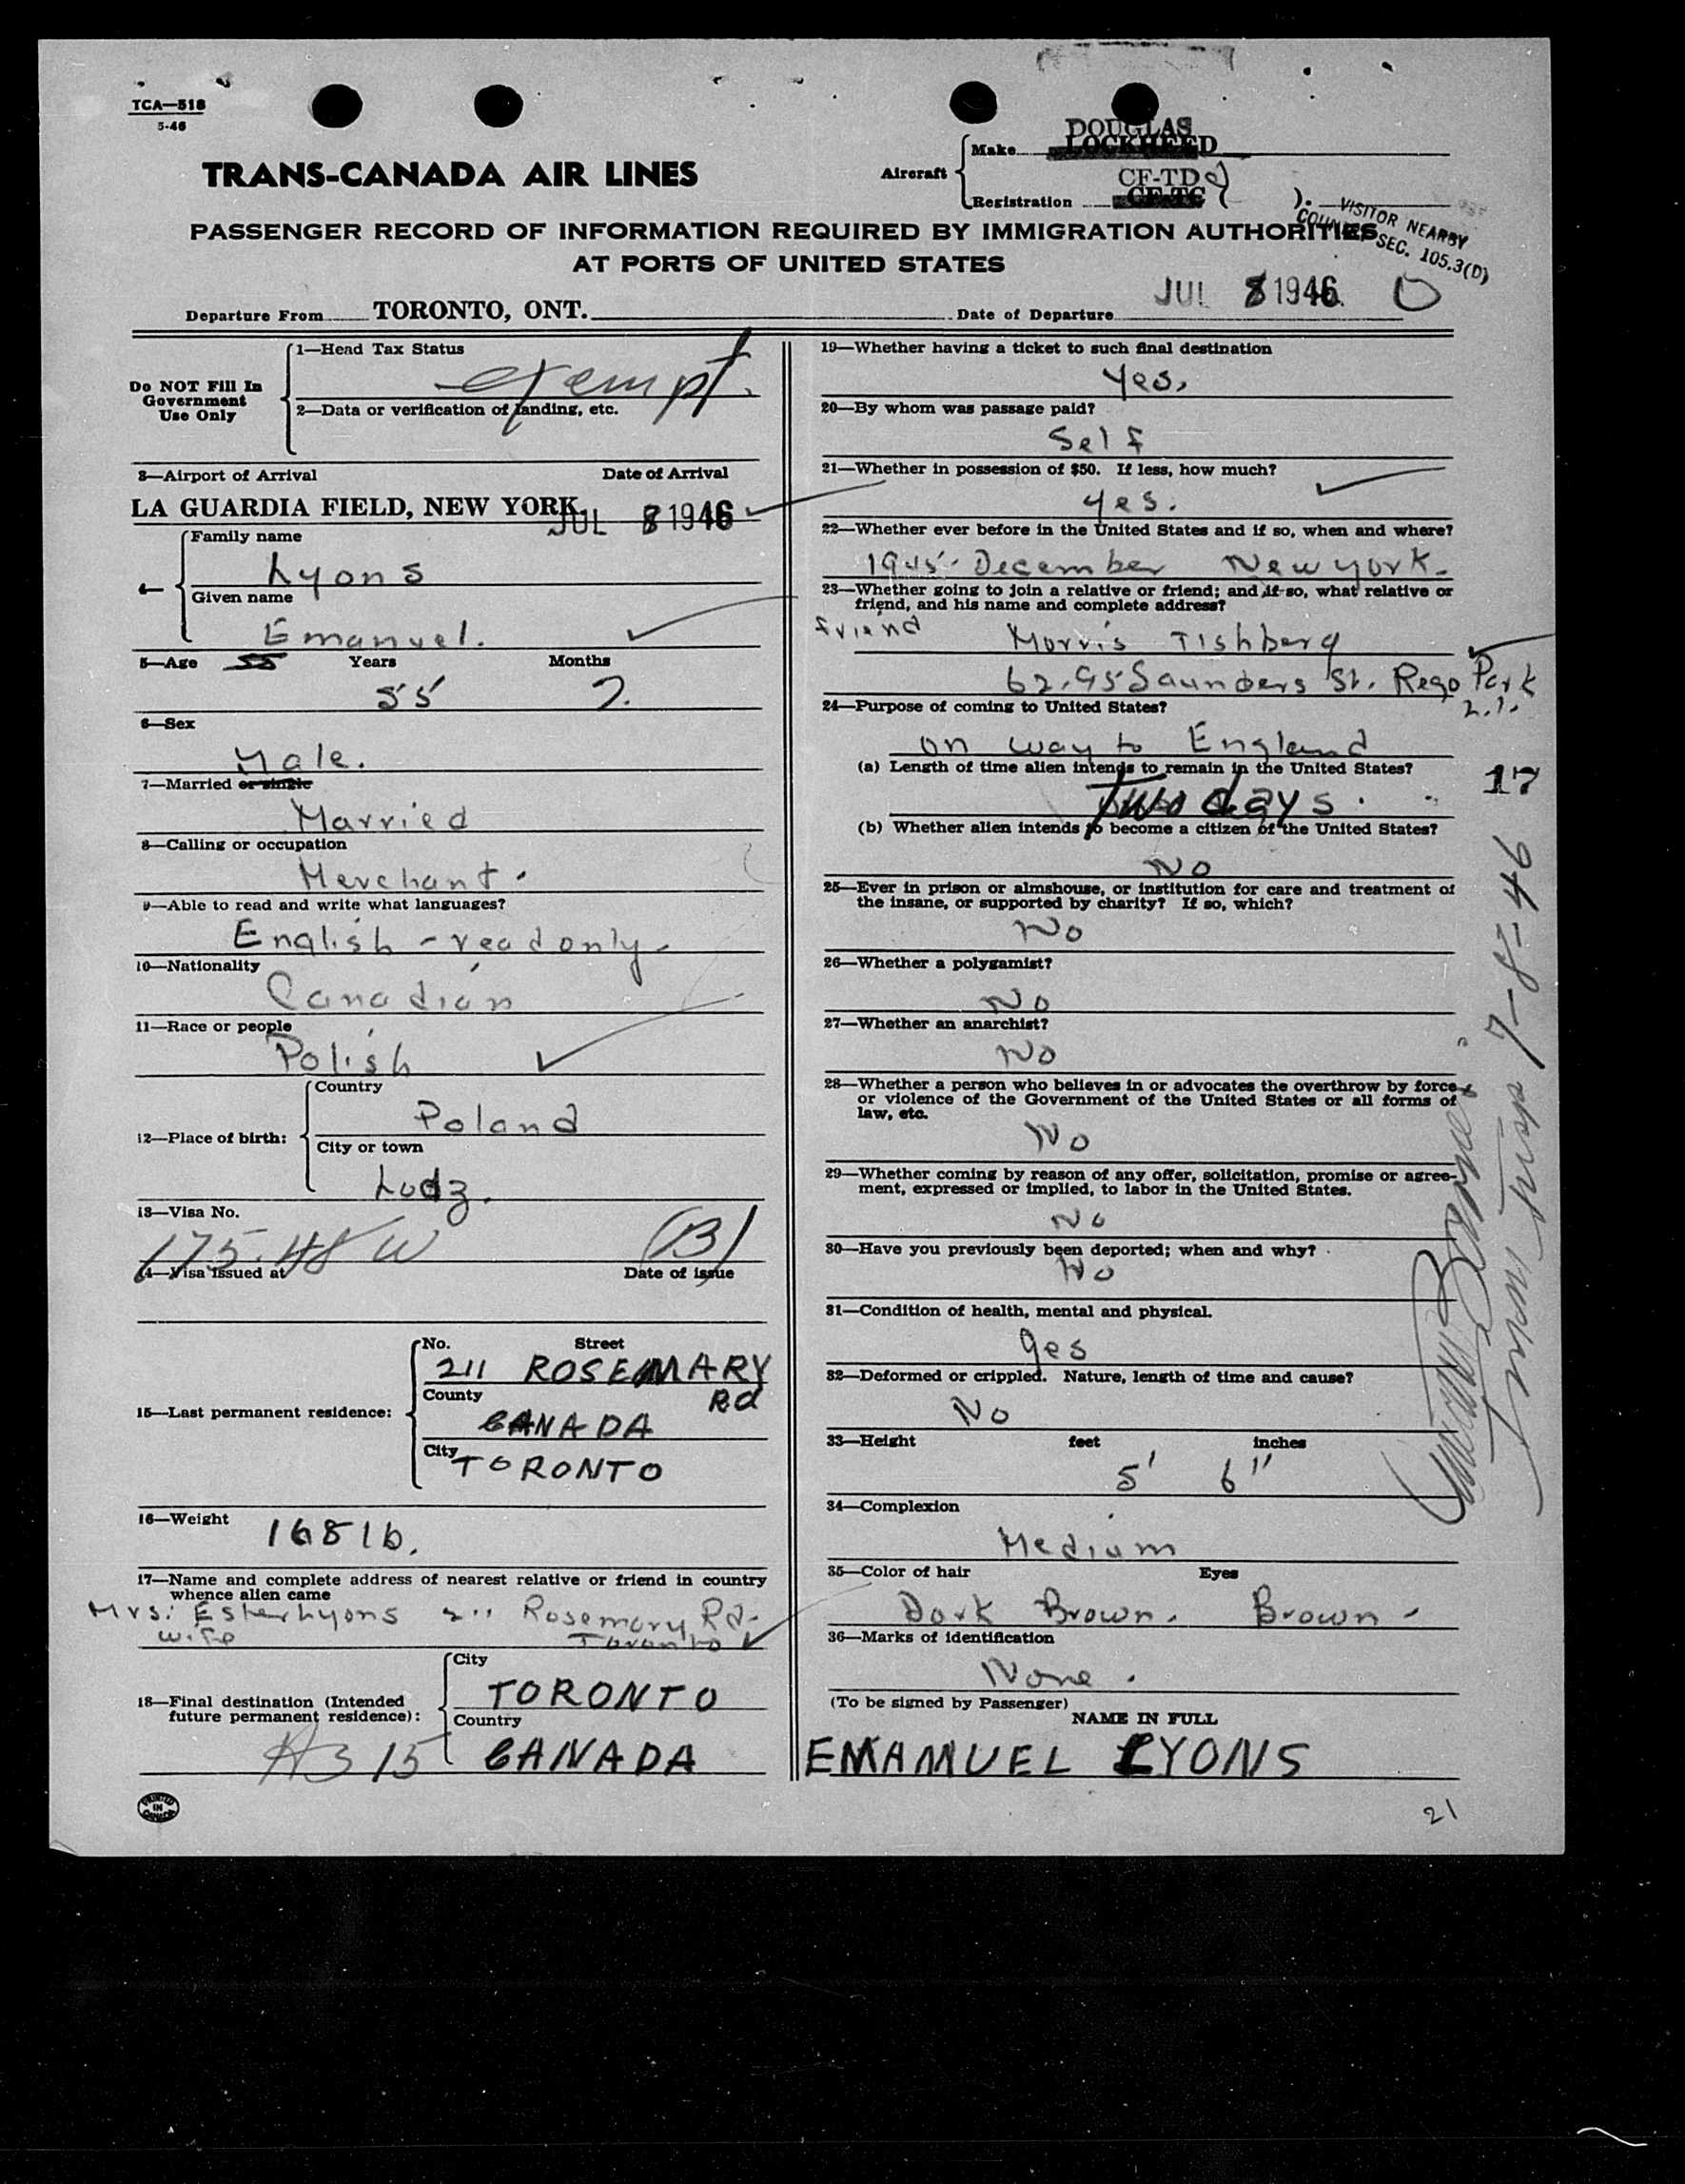 TCA—518
5-46
DOUGLAS
LOCKHEED
Aircraft
Make
CF-TD
CF-TC ( ).
Registration
TRANS-CANADA AIR LINES
VISITOR NEARBY
COUNTRY SEC. 105.3(D)
PASSENGER RECORD OF INFORMATION REQUIRED BY IMMIGRATION AUTHORITIES
AT PORTS OF UNITED STATES
Departure From TORONTO, ONT.
Date of Departure JUL 8 1946
Do NOT Fill In
Government
Use Only
1—Head Tax Status
exempt.
2—Data or verification of landing, etc.
3—Airport of Arrival Date of Arrival
LA GUARDIA FIELD, NEW YORK. JUL 8 1946
4—
Family name
Lyons
Given name
Emanuel.
5—Age 55 Years Months
55 7.
6—Sex
Male.
7—Married or single
Married
8—Calling or occupation
Merchant.
9—Able to read and write what languages?
English - read only -
10—Nationality
Canadian
11—Race or people
Polish
12—Place of birth:
Country
Poland
City or town
Lodz.
13—Visa No.
175.48 W (B)
14—Visa issued at Date of issue
15—Last permanent residence:
No. Street
211 ROSEMARY
Rd
County
CANADA
City
TORONTO
16—Weight
168 lb.
17—Name and complete address of nearest relative or friend in country
whence alien came
Mrs. Ester Lyons 211 Rosemary Rd.
wife Toronto
18—Final destination (Intended
future permanent residence):
City
TORONTO
Country
CANADA
A3 15
PRINTED
IN
CANADA
19—Whether having a ticket to such final destination
Yes.
20—By whom was passage paid?
Self
21—Whether in possession of $50. If less, how much?
yes.
22—Whether ever before in the United States and if so, when and where?
1945 - December New York -
23—Whether going to join a relative or friend; and if so, what relative or
friend, and his name and complete address?
friend Morris Tishberg
62.95 Saunders St. Rego Park
L.I.
24—Purpose of coming to United States?
on way to England
(a) Length of time alien intends to remain in the United States?
Two days.
17
(b) Whether alien intends to become a citizen of the United States?
No
25—Ever in prison or almshouse, or institution for care and treatment of
the insane, or supported by charity? If so, which?
No
26—Whether a polygamist?
No
27—Whether an anarchist?
No
28—Whether a person who believes in or advocates the overthrow by force
or violence of the Government of the United States or all forms of
law, etc.
No
29—Whether coming by reason of any offer, solicitation, promise or agree-
ment, expressed or implied, to labor in the United States.
No
30—Have you previously been deported; when and why?
No
31—Condition of health, mental and physical.
yes
32—Deformed or crippled. Nature, length of time and cause?
No
33—Height feet inches
5' 6"
34—Complexion
Medium
35—Color of hair Eyes
Dark Brown. Brown -
36—Marks of identification
None.
(To be signed by Passenger)
NAME IN FULL
EMAMUEL LYONS
21
7-8-46